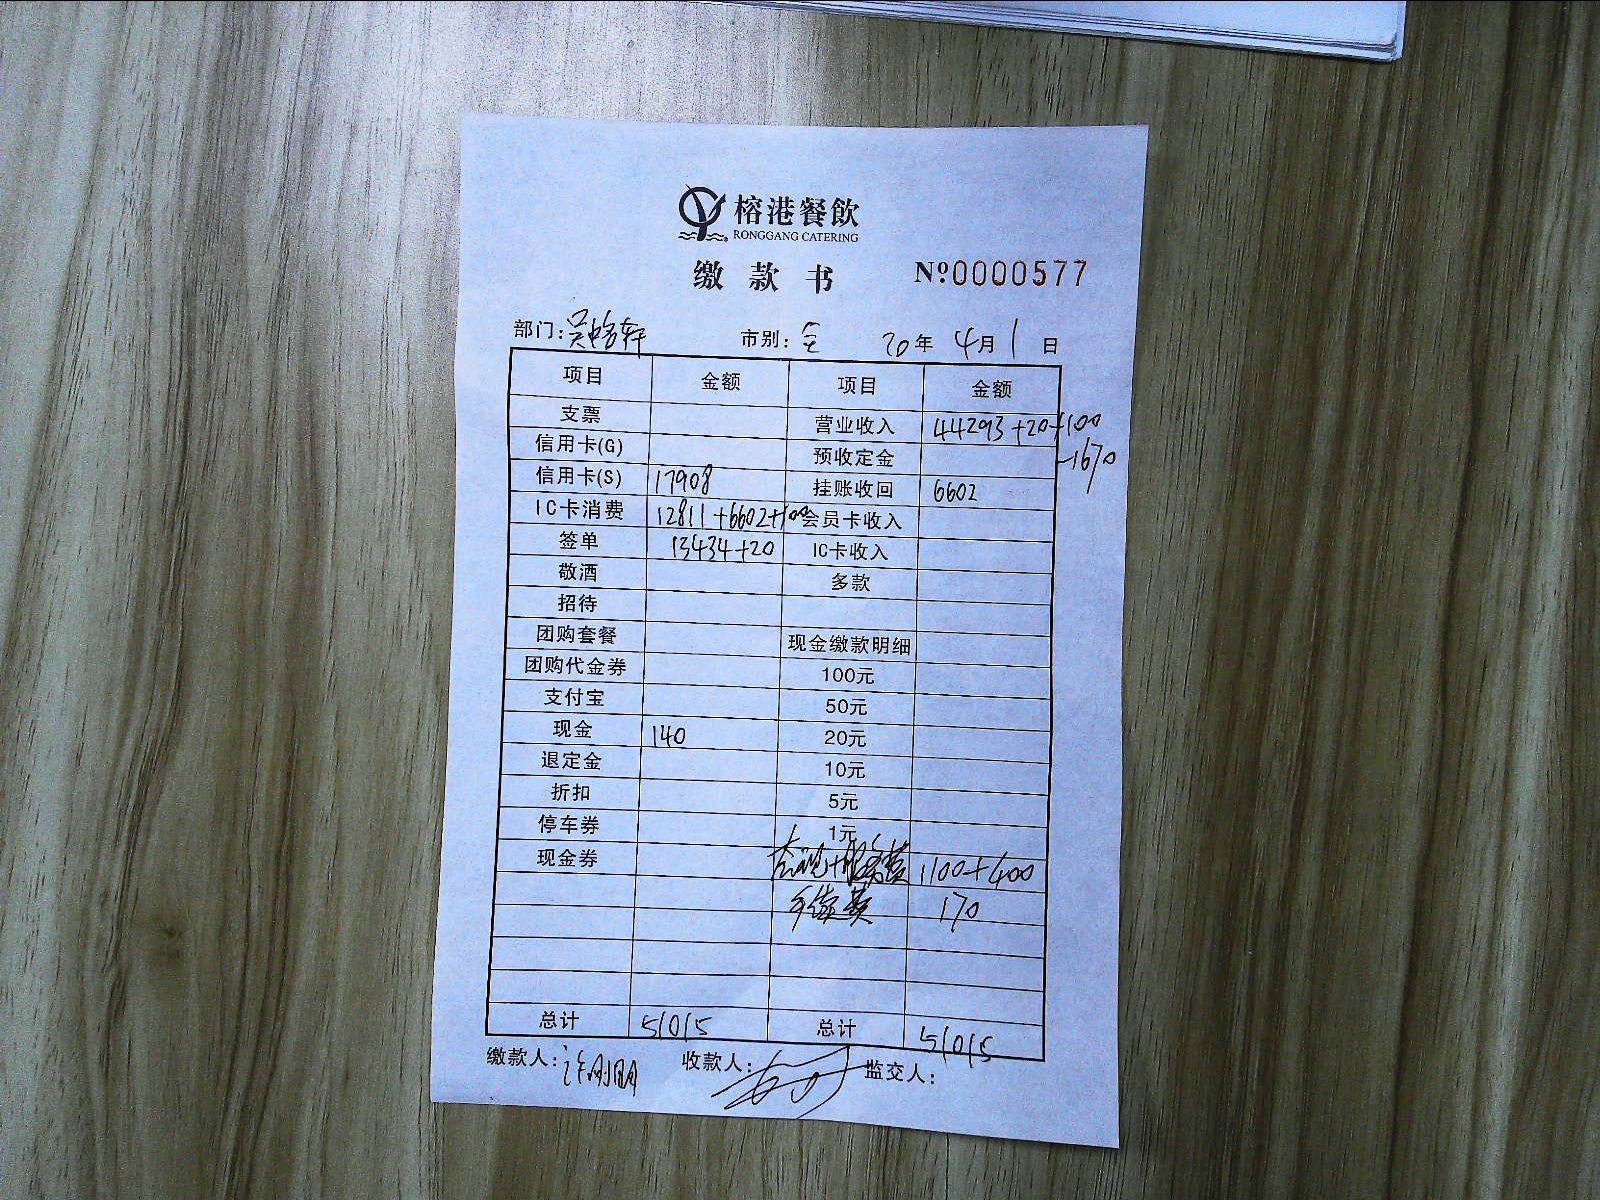 榕港餐飲
RONGGANG CATERING
缴款书 Nº0000577
部门: 市别:全 20年4月1日
项目 金额 项目 金额
支票 营业收入 44293+20+100
信用卡(G) 预收定金 -1670
信用卡(S) 17908 挂账收回 6602
IC卡消费 12811+6602+100 会员卡收入
签单 13434+20 IC卡收入
敬酒 多款
招待
团购套餐 现金缴款明细
团购代金券 100元
支付宝 50元
现金 140 20元
退定金 10元
折扣 5元
停车券 1元
现金券 +服务费 1100+400
手续费 170
总计 51015 总计 51015
缴款人: 收款人: 监交人: